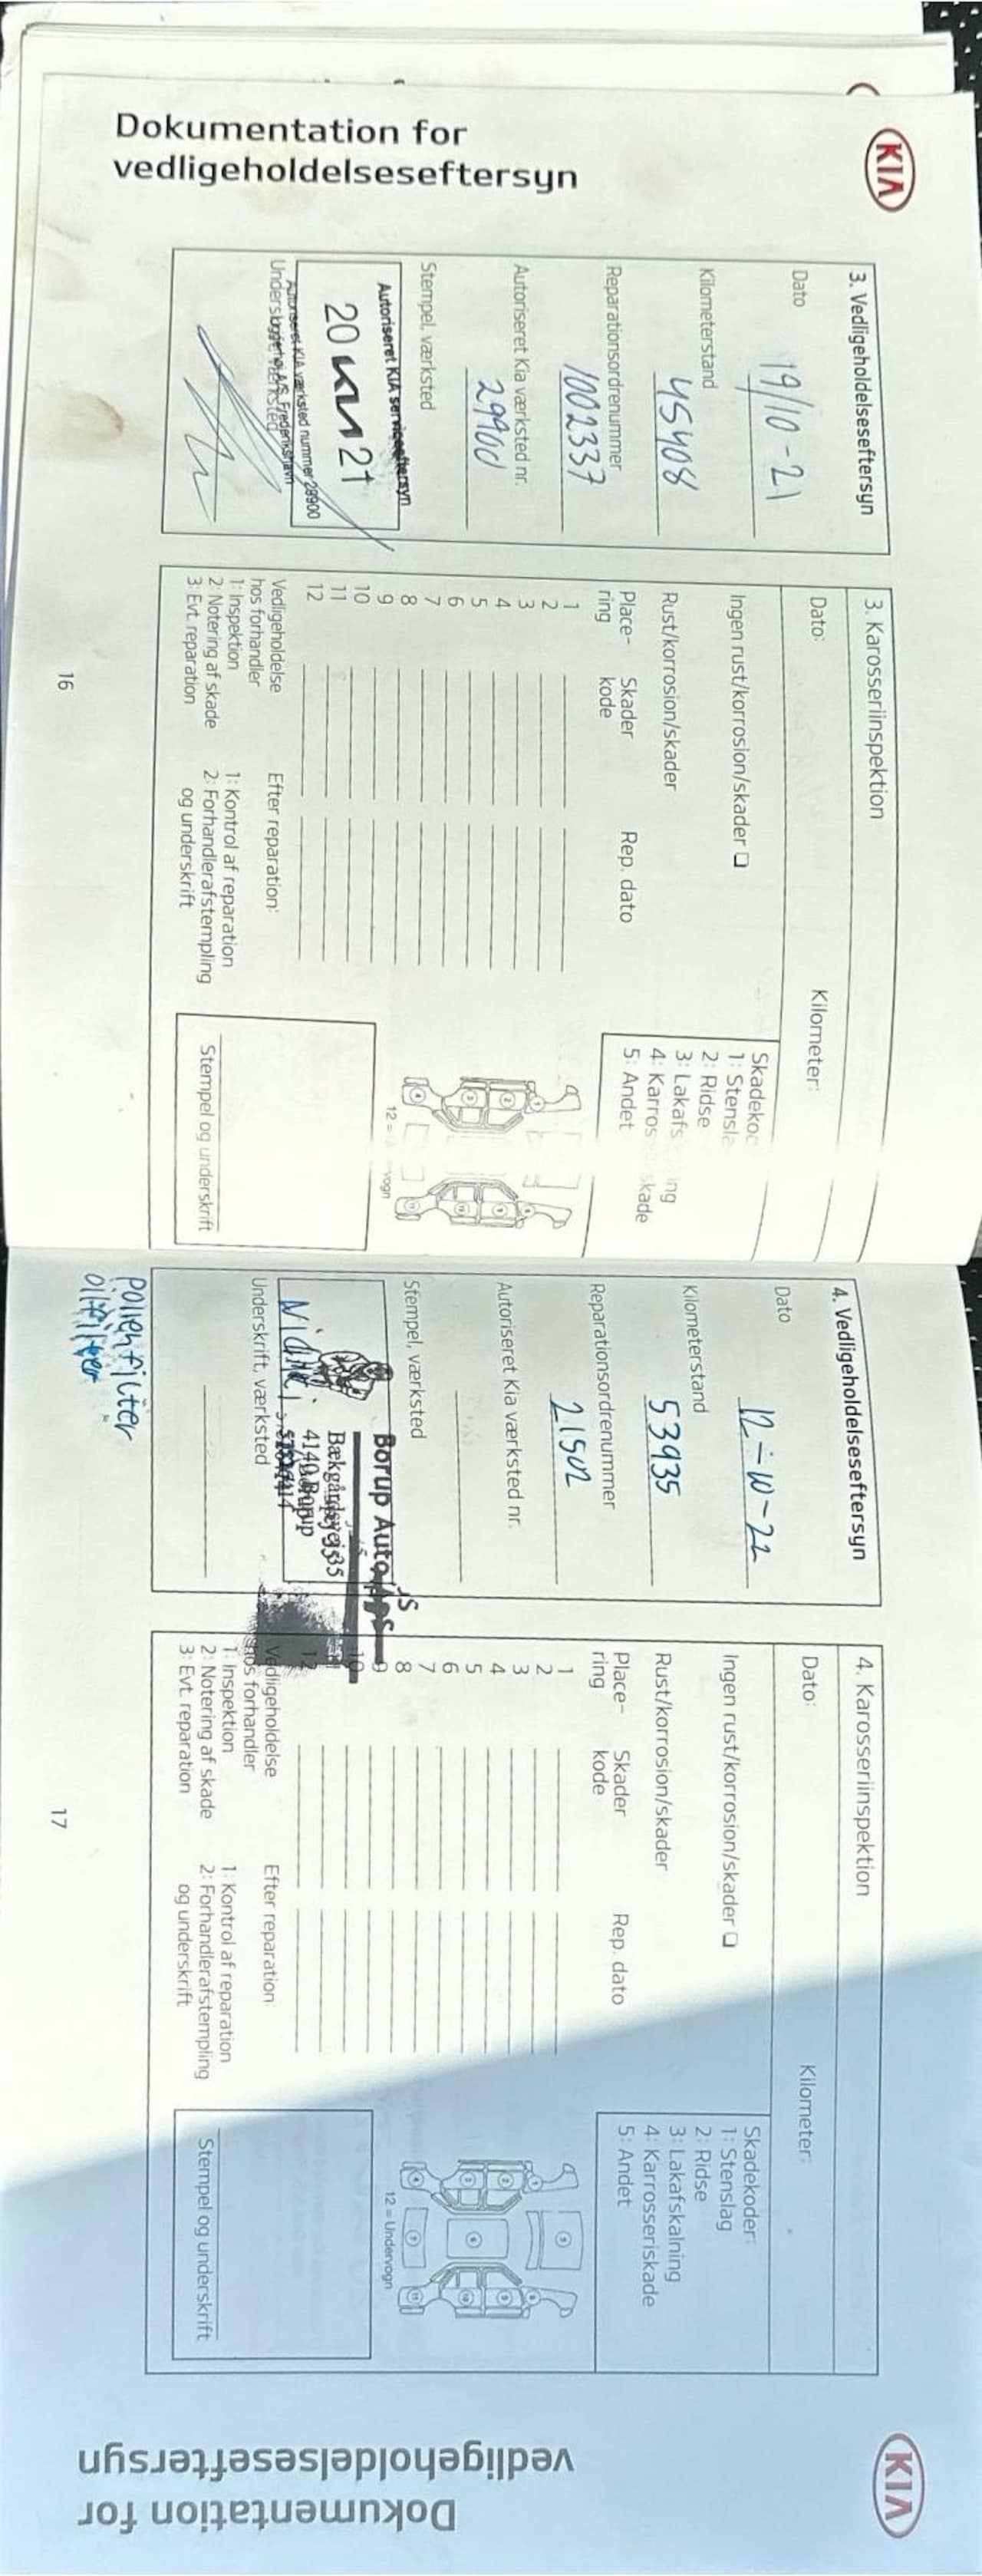 KIA
Dokumentation for
vedligeholdelseseftersyn
3. Vedligeholdelseseftersyn
Dato
19/10-21
Kilometerstand
45408
Reparationsordrenummer
1002337
Autoriseret Kia værksted nr.
29900
Stempel, værksted
Autoriseret KIA serviceeftersyn
20 KIA 21
Autoriseret KIA værksted nummer 29900
A/S, Frederikshavn
Underskrift, værksted
3. Karosseriinspektion
Dato:
Kilometer:
Ingen rust/korrosion/skader ❑
Rust/korrosion/skader
Place-
ring
Skader
kode
Rep. dato
1
2
3
4
5
6
7
8
9
10
11
12
Skadekod
1: Stensla
2: Ridse
3: Lakafs ing
4: Karros skade
5: Andet
12 = vogn
Vedligeholdelse
hos forhandler
1: Inspektion
2: Notering af skade
3: Evt. reparation
Efter reparation:
1: Kontrol af reparation
2: Forhandlerafstempling
og underskrift
Stempel og underskrift
16
4. Vedligeholdelseseftersyn
Dato
12-10-22
Kilometerstand
53935
Reparationsordrenummer
21502
Autoriseret Kia værksted nr.
Stempel, værksted
Borup Auto ApS
Bækgårdsvej 35
4140 Borup
Underskrift, værksted
pollenfilter
oliefilter
4. Karosseriinspektion
Dato:
Kilometer:
Ingen rust/korrosion/skader ❑
Rust/korrosion/skader
Place-
ring
Skader
kode
Rep. dato
1
2
3
4
5
6
7
8
9
10
11
12
Skadekoder:
1: Stenslag
2: Ridse
3: Lakafskalning
4: Karrosseriskade
5: Andet
12 = Undervogn
Vedligeholdelse
hos forhandler
1: Inspektion
2: Notering af skade
3: Evt. reparation
Efter reparation
1: Kontrol af reparation
2: Forhandlerafstempling
og underskrift
Stempel og underskrift
17
KIA
Dokumentation for
vedligeholdelseseftersyn